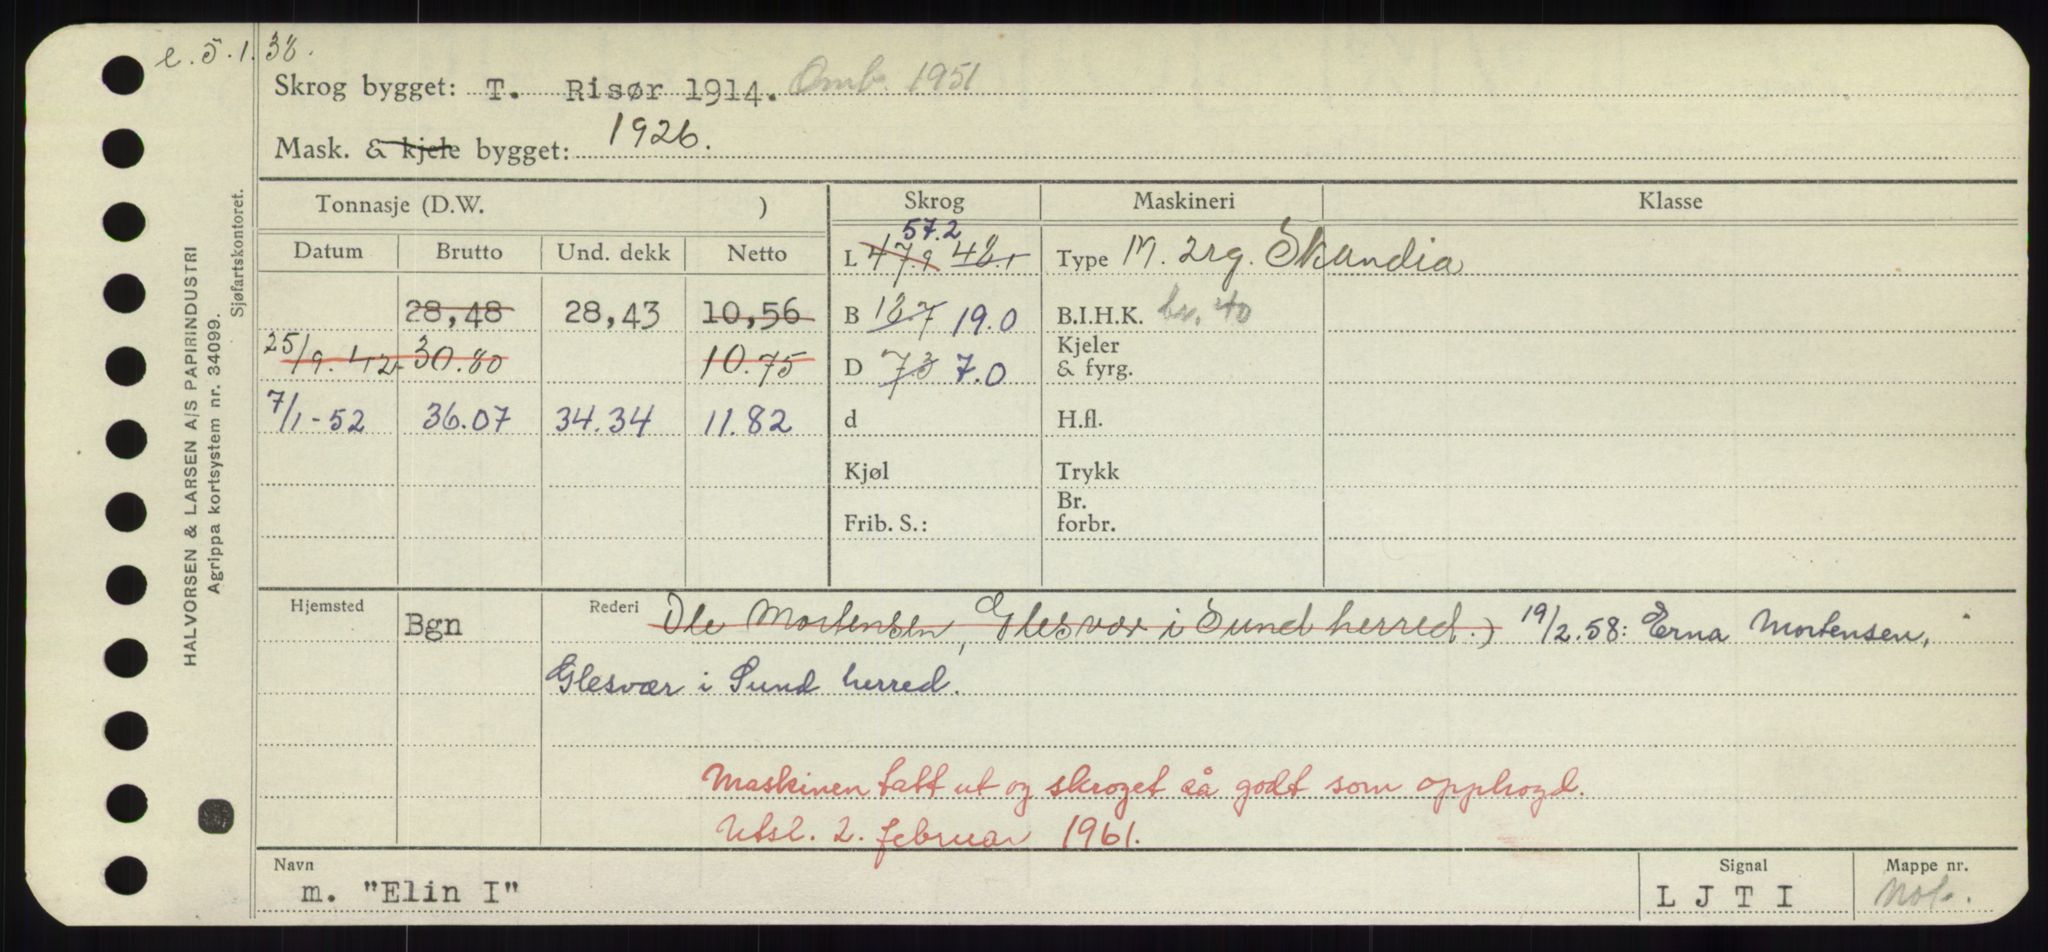 e. 5.1.38.
Skrog bygget: T. Risør 1914. Omb. 1951
Mask. & kjele bygget: 1926.
HALVORSEN & LARSEN A/S PAPIRINDUSTRI
Agrippa kortsystem nr. 34099.
Sjøfartskontoret.
Tonnasje (D.W. ) Skrog Maskineri Klasse
Datum Brutto Und. dekk Netto
57.2
L 47.9 48.1 Type M. 2rg. Skandia
28,48 28,43 10,56 B 18.7 19.0 B.I.H.K. br. 40
25/9. 42 30.80 10.75 D 7.3 7.0 Kjeler
& fyrg.
7/1-52 36.07 34.34 11.82 d H.fl.
Kjøl Trykk
Frib. S.: Br.
forbr.
Hjemsted Bgn Rederi Ole Mortensen, Glesvær i Sund herred.) 19/2.58: Erna Mortensen,
Glesvær i Sund herred.
Maskinen tatt ut og skroget så godt som opphogd.
Utsl. 2. februar 1961.
Navn Signal Mappe nr.
m. "Elin I" L J T I Not.